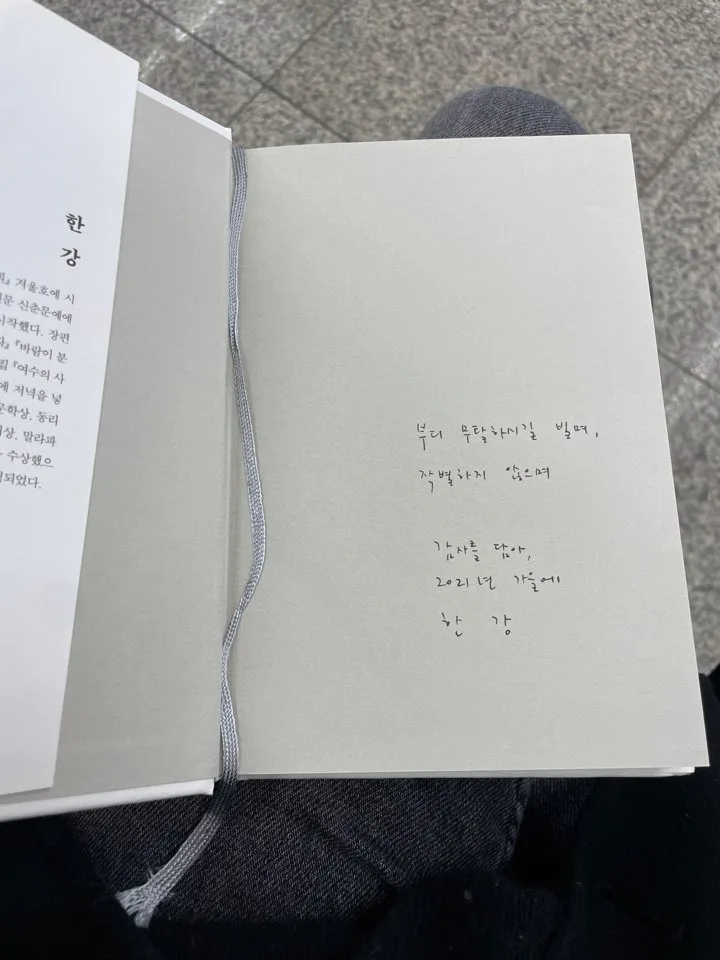 한
강
겨울호에 시
신춘문예에
장편
『바람이 분
『여수의 사
에 저녁을 넣
문학상, 동리
말라파
수상했으
되었다.
부디 무탈하시길 빌며,
작별하지 않으며
감사를 담아,
2021년 가을에
한 강